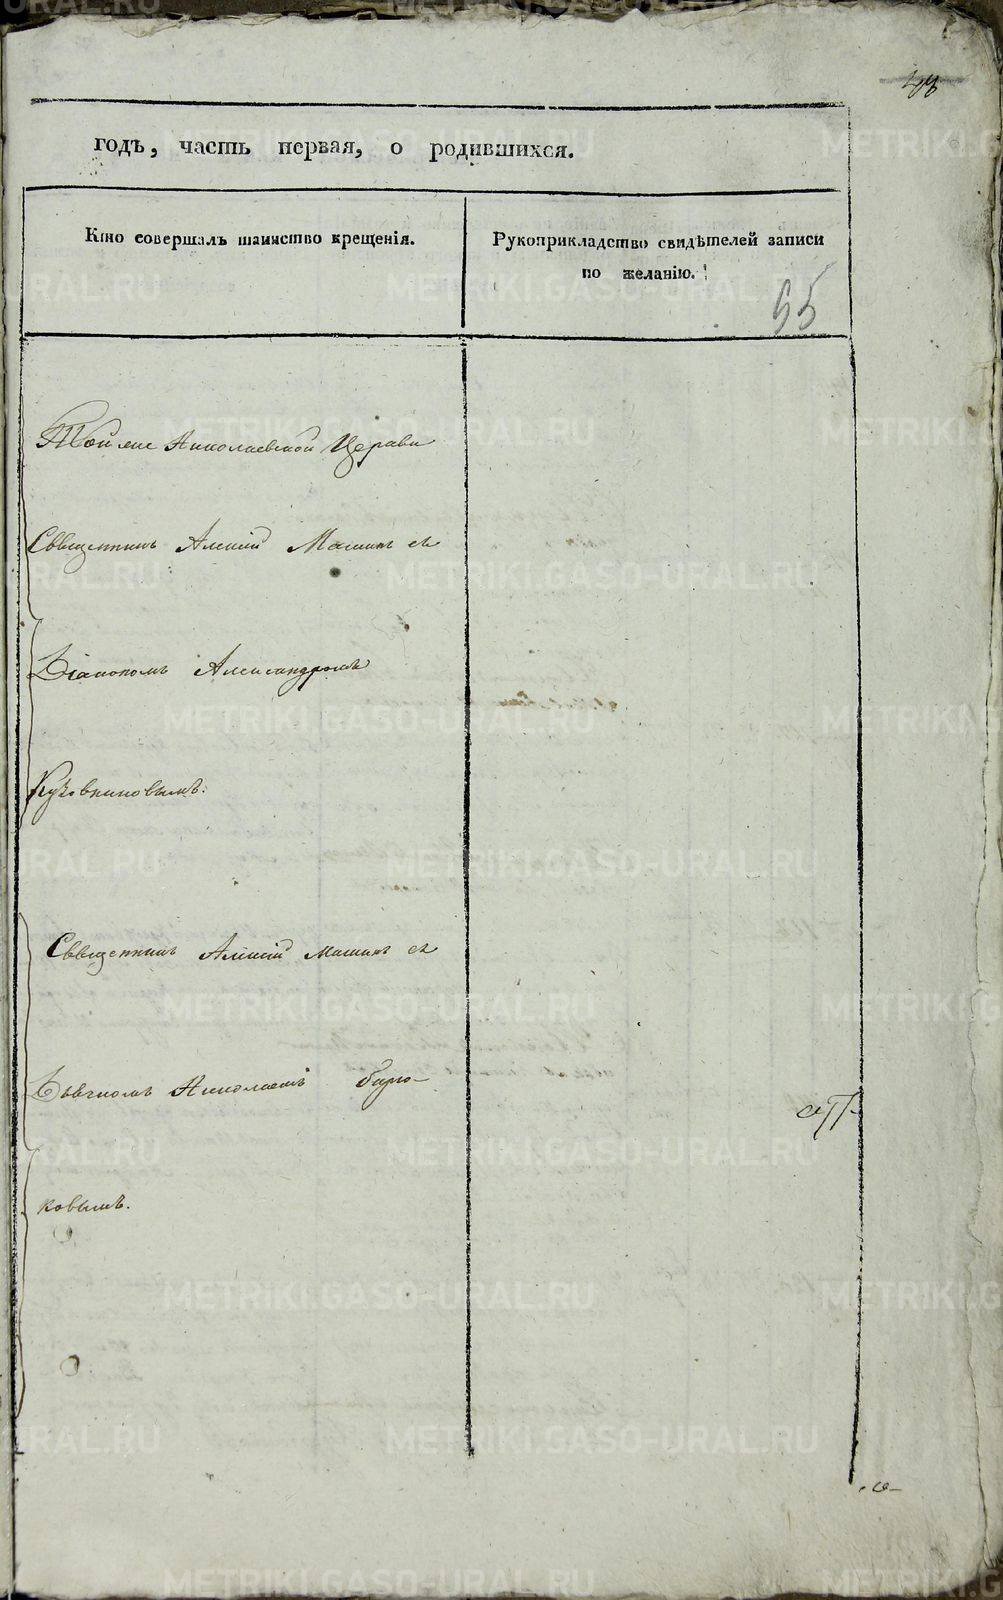 годъ, часть первая, о родившихся.
Кто совершалъ таинство крещенія.
Рукоприкладство свидѣтелей записи
по желанію.
55
Тойже Николаевской Церкви
Священникъ Алексій Машинъ съ
Діакономъ Александромъ
Кузовниковымъ.
Священникъ Алексій Машинъ съ
Дьячкомъ Николаемъ Бирю-
ковымъ.
METRIKI.GASO-URAL.RU